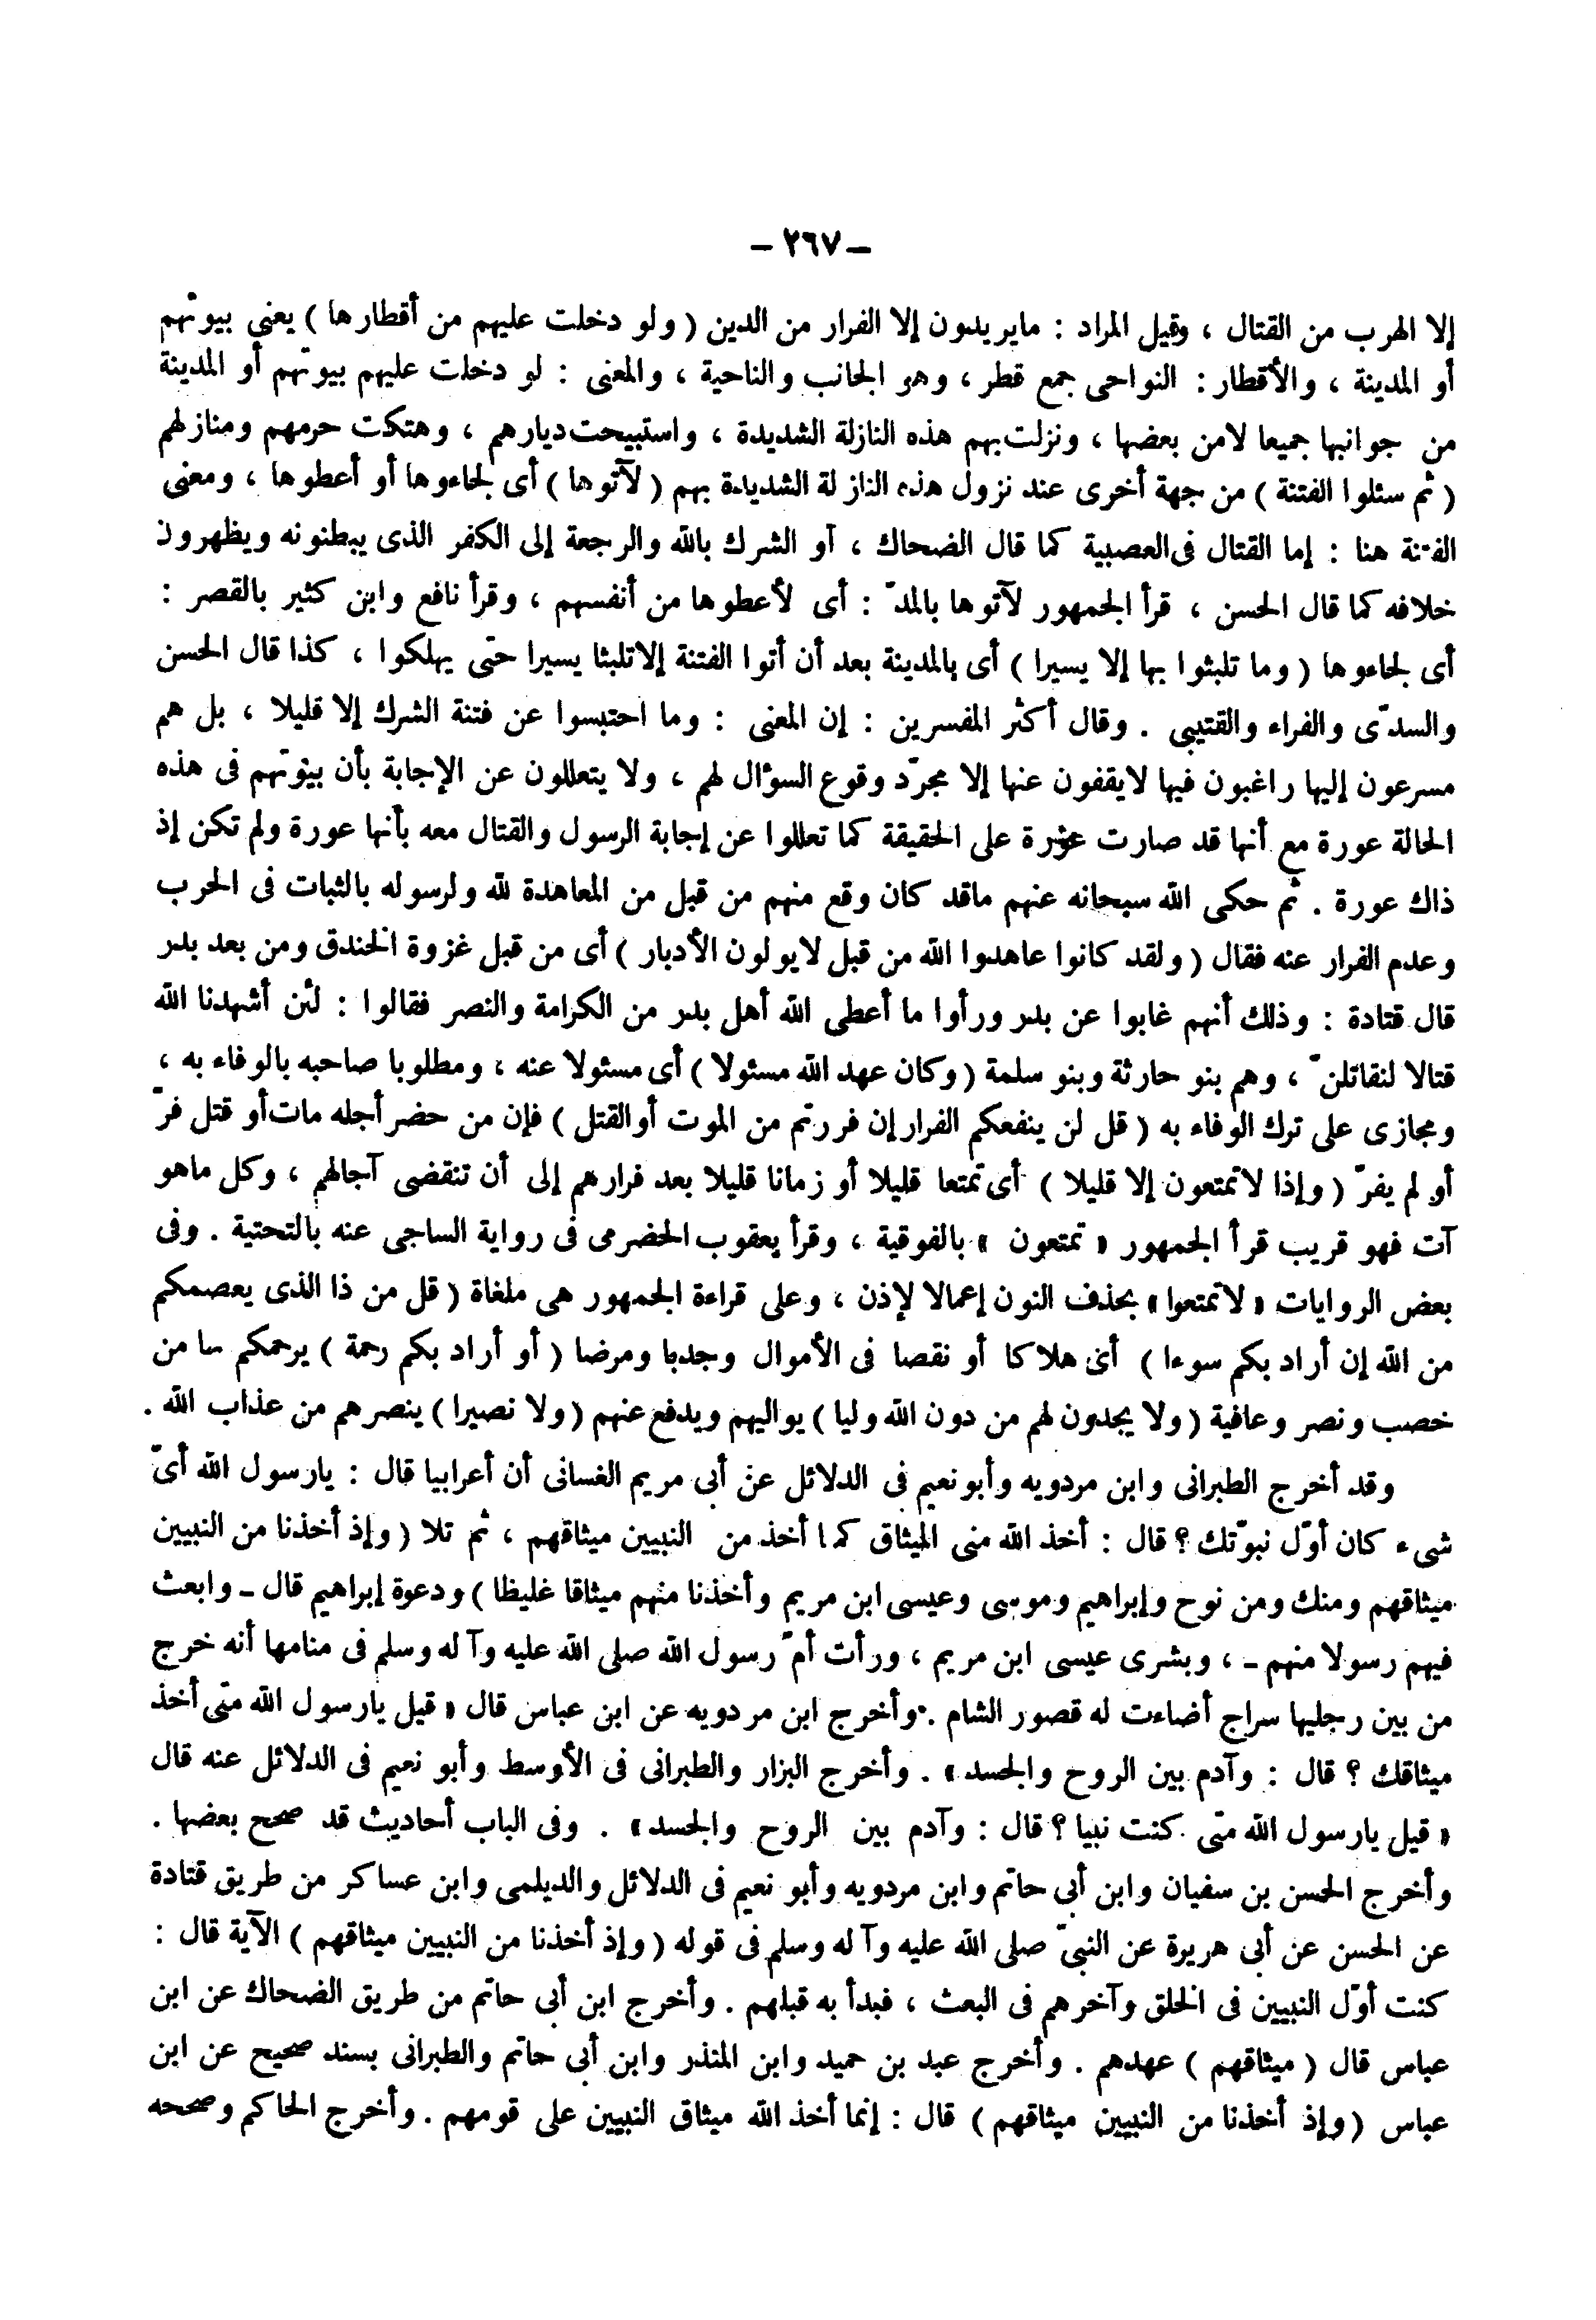 ـ ٢٦٧ ـ
إلا الهرب من القتال ، وقيل المراد : مايريدون إلا الفرار من الدين ( ولو دخلت عليهم من أقطارها ) يعني بيوتهم
أو المدينة ، والأقطار : النواحى جمع قطر ، وهو الجانب والناحية ، والمعنى : لو دخلت عليهم بيوتهم أو المدينة
من جوانبها جميعا لامن بعضها ، ونزلت بهم هذه النازلة الشديدة ، واستبيحت ديارهم ، وهتكت حرمهم ومنازلهم
( ثم سئلوا الفتنة ) من جهة أخرى عند نزول هذه النازلة الشديدة بهم ( لآتوها ) أى لجاءوها أو أعطوها ، ومعنى
الفتنة هنا : إما القتال فى العصبية كما قال الضحاك ، أو الشرك بالله والرجعة إلى الكفر الذى يبطنونه ويظهرون
خلافه كما قال الحسن ، قرأ الجمهور لآتوها بالمدّ : أى لأعطوها من أنفسهم ، وقرأ نافع وابن كثير بالقصر :
أى لجاءوها ( وما تلبثوا بها إلا يسيرا ) أى بالمدينة بعد أن أتوا الفتنة إلاتلبثا يسيرا حتى يهلكوا ، كذا قال الحسن
والسدّى والفراء والقتيبى . وقال أكثر المفسرين : إن المعنى : وما احتبسوا عن فتنة الشرك إلا قليلا ، بل هم
مسرعون إليها راغبون فيها لايقفون عنها إلا مجرّد وقوع السؤال لهم ، ولا يتعللون عن الإجابة بأن بيوتهم فى هذه
الحالة عورة مع أنها قد صارت عورة على الحقيقة كما تعللوا عن إجابة الرسول والقتال معه بأنها عورة ولم تكن إذ
ذاك عورة . ثم حكى الله سبحانه عنهم ماقد كان وقع منهم من قبل من المعاهدة لله ولرسوله بالثبات فى الحرب
وعدم الفرار عنه فقال ( ولقد كانوا عاهدوا الله من قبل لايولون الأدبار ) أى من قبل غزوة الخندق ومن بعد بدر
قال قتادة : وذلك أنهم غابوا عن بدر ورأوا ما أعطى الله أهل بدر من الكرامة والنصر فقالوا : لئن أشهدنا الله
قتالا لنقاتلنّ ، وهم بنو حارثة وبنو سلمة ( وكان عهد الله مسئولا ) أى مسئولا عنه ، ومطلوبا صاحبه بالوفاء به ،
ومجازى على ترك الوفاء به ( قل لن ينفعكم الفرار إن فررتم من الموت أو القتل ) فإن من حضر أجله مات أو قتل فرّ
أو لم يفرّ ( وإذا لاتمتعون إلا قليلا ) أى تمتعا قليلا أو زمانا قليلا بعد فرارهم إلى أن تنقضى آجالهم ، وكل ماهو
آت فهو قريب قرأ الجمهور « تمتعون » بالفوقية ، وقرأ يعقوب الحضرمى فى رواية الساجى عنه بالتحتية . وفى
بعض الروايات « لاتمتعوا » بحذف النون إعمالا لإذن ، وعلى قراءة الجمهور هى ملغاة ( قل من ذا الذى يعصمكم
من الله إن أراد بكم سوءا ) أى هلاكا أو نقصا فى الأموال وجدبا ومرضا ( أو أراد بكم رحمة ) يرحمكم بها من
خصب ونصر وعافية ( ولا يجدون لهم من دون الله وليا ) يواليهم ويدفع عنهم ( ولا نصيرا ) ينصرهم من عذاب الله .
وقد أخرج الطبرانى وابن مردويه وأبو نعيم فى الدلائل عن أبى مريم الغسانى أن أعرابيا قال : يارسول الله أىّ
شىء كان أوّل نبوّتك ؟ قال : أخذ الله منى الميثاق كما أخذ من النبيين ميثاقهم ، ثم تلا ( وإذ أخذنا من النبيين
ميثاقهم ومنك ومن نوح وإبراهيم وموسى وعيسى ابن مريم وأخذنا منهم ميثاقا غليظا ) ودعوة إبراهيم قال ـ وابعث
فيهم رسولا منهم ـ ، وبشرى عيسى ابن مريم ، ورأت أمّ رسول الله صلى الله عليه وآله وسلم فى منامها أنه خرج
من بين رجليها سراج أضاءت له قصور الشام . وأخرج ابن مردويه عن ابن عباس قال « قيل يارسول الله متى أخذ
ميثاقك ؟ قال : وآدم بين الروح والجسد » . وأخرج البزار والطبرانى فى الأوسط وأبو نعيم فى الدلائل عنه قال
« قيل يارسول الله متى كنت نبيا ؟ قال : وآدم بين الروح والجسد » . وفى الباب أحاديث قد صحح بعضها .
وأخرج الحسن بن سفيان وابن أبى حاتم وابن مردويه وأبو نعيم فى الدلائل والديلمى وابن عساكر من طريق قتادة
عن الحسن عن أبى هريرة عن النبىّ صلى الله عليه وآله وسلم فى قوله ( وإذ أخذنا من النبيين ميثاقهم ) الآية قال :
كنت أوّل النبيين فى الخلق وآخرهم فى البعث ، فبدأ به قبلهم . وأخرج ابن أبى حاتم من طريق الضحاك عن ابن
عباس قال ( ميثاقهم ) عهدهم . وأخرج عبد بن حميد وابن المنذر وابن أبى حاتم والطبرانى بسند صحيح عن ابن
عباس ( وإذ أخذنا من النبيين ميثاقهم ) قال : إنما أخذ الله ميثاق النبيين على قومهم . وأخرج الحاكم وصححه